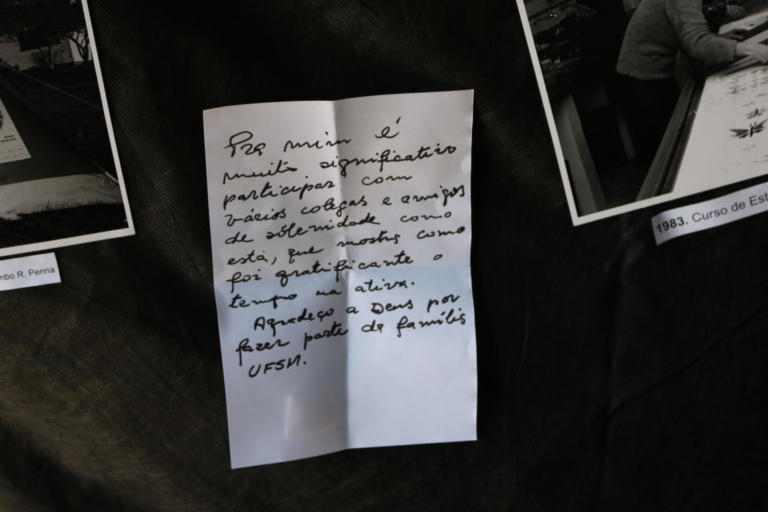 Pra mim é
muito significativo
participar com
vários colegas e amigos
de solenidade como
está, que mostra como
foi gratificante o
tempo na ativa.
Agradeço a Deus por
fazer parte da família
UFSM.
mbo R. Penna
1983. Curso de Est